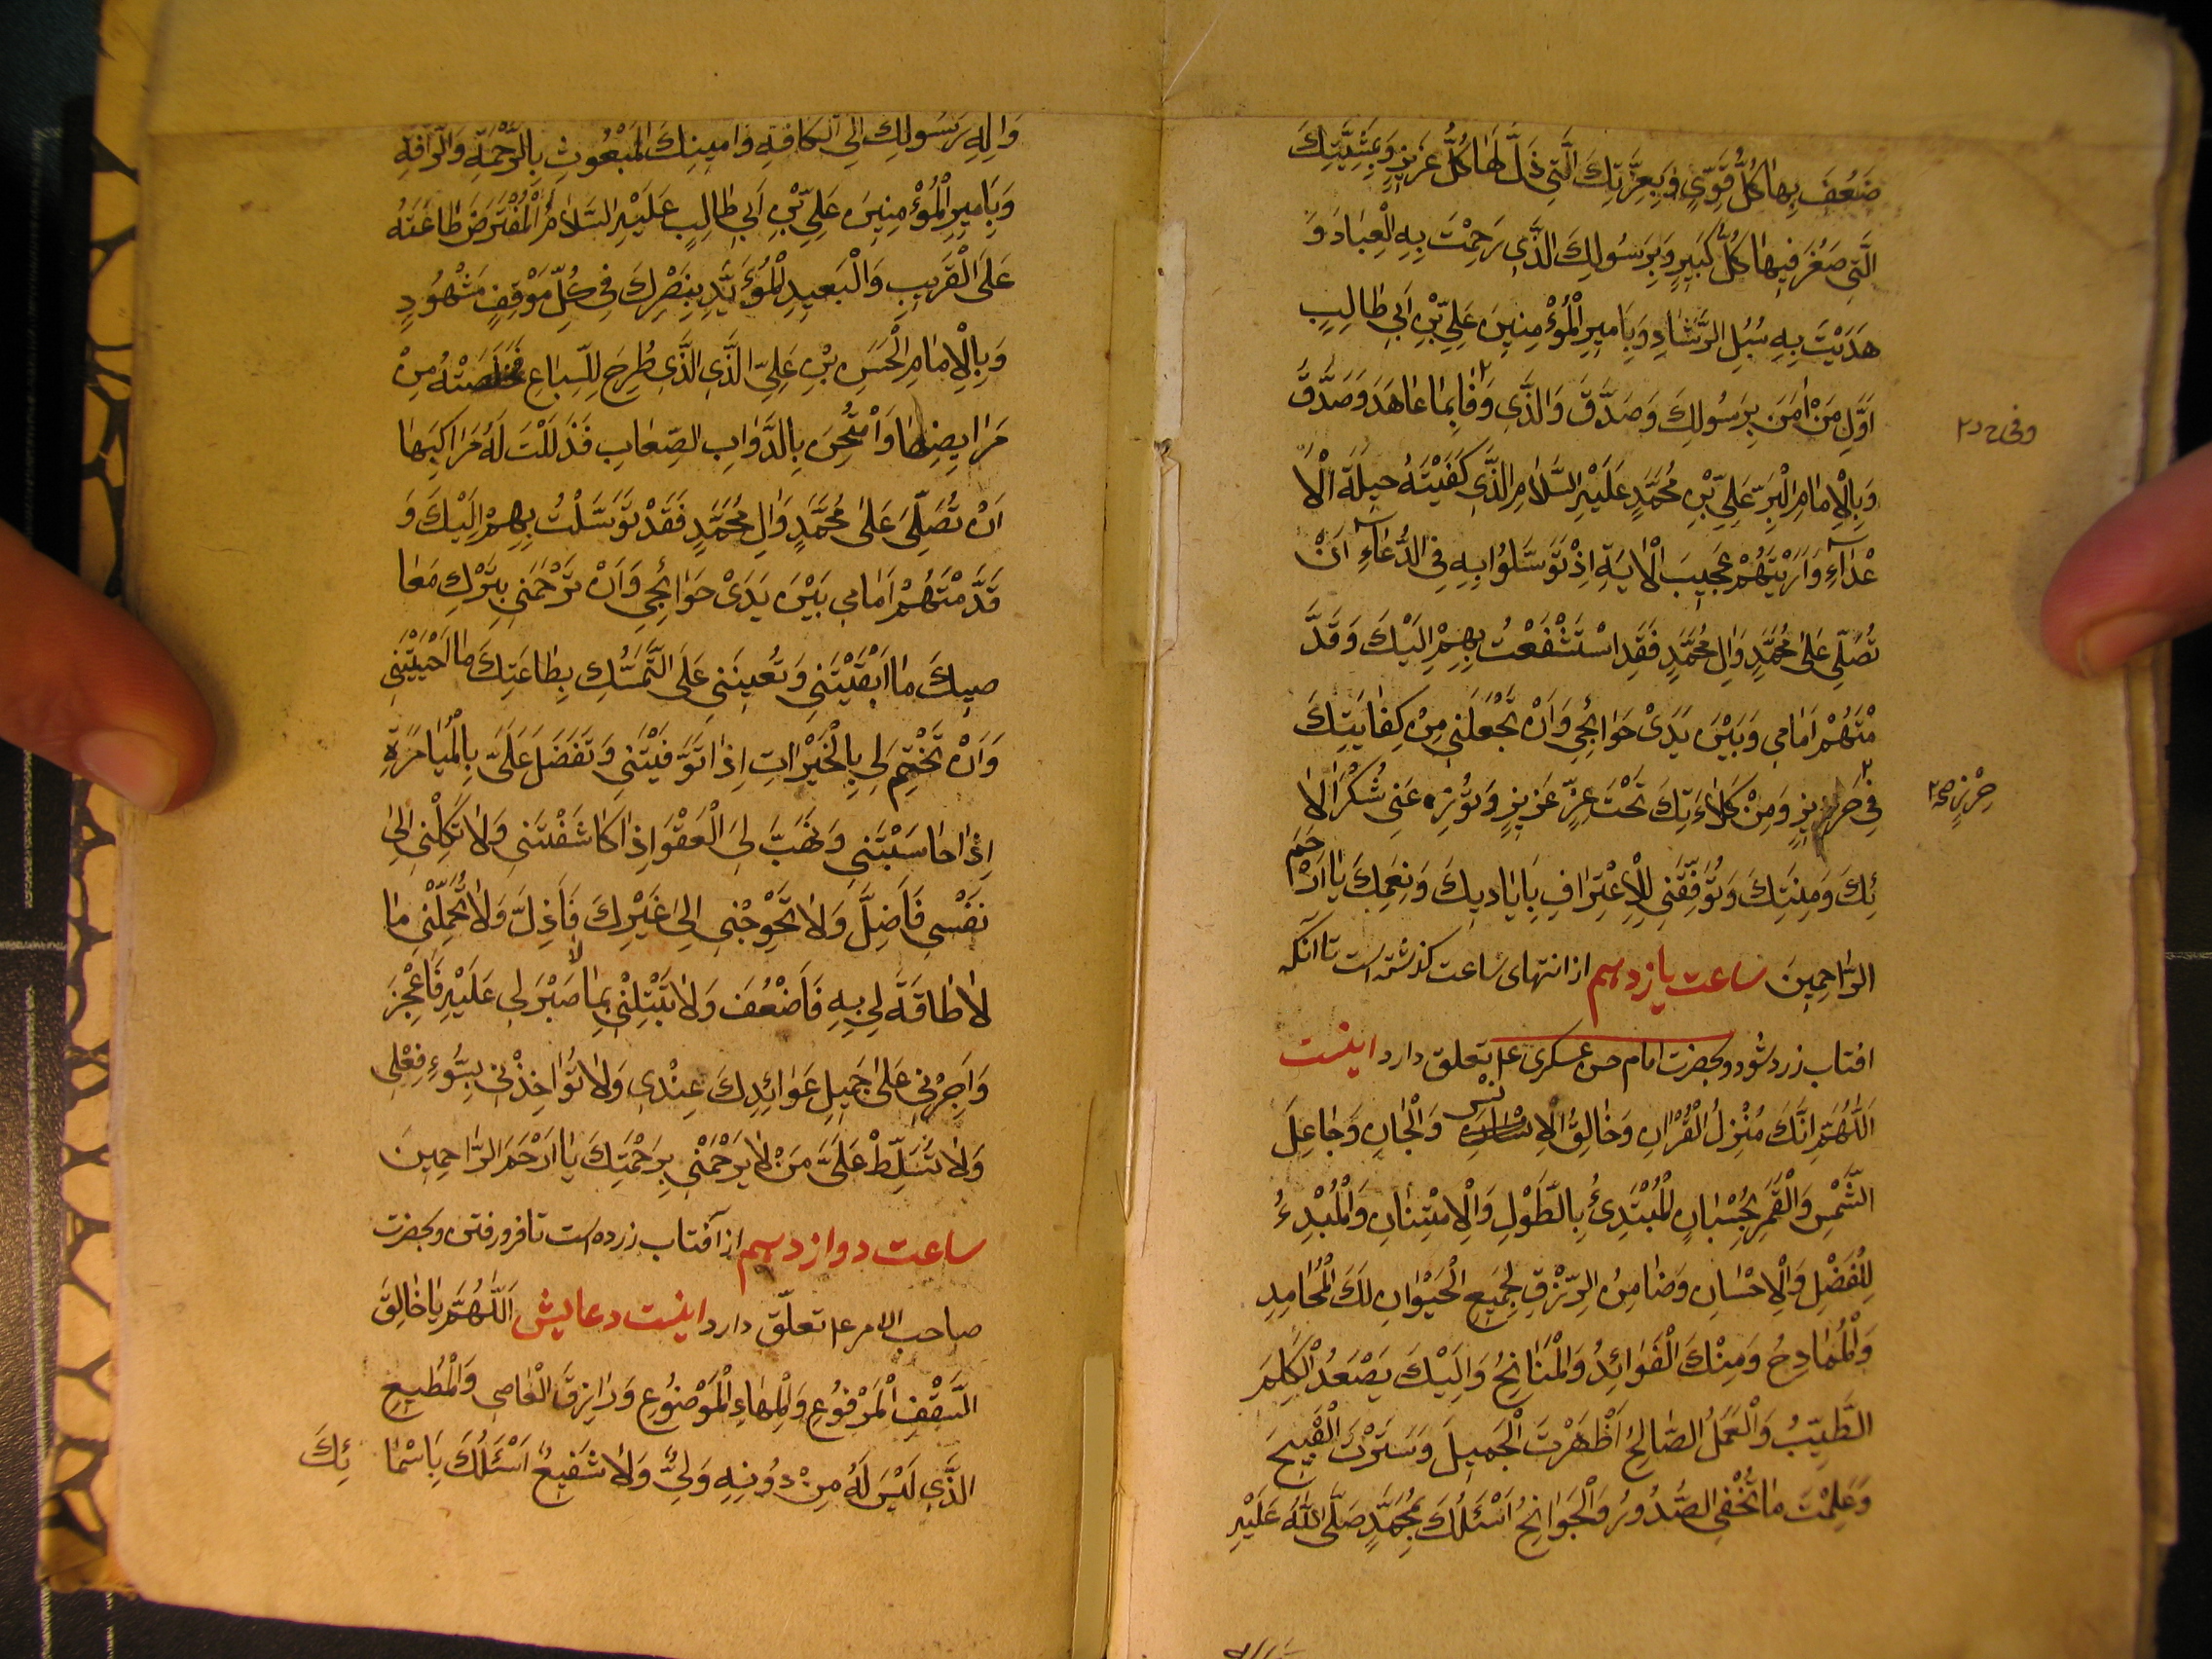 ضَعُفَ بِهَا كُلُّ قَوِيٍّ وَبِعِزَّتِكَ الَّتِي ذَلَّ لَهَا كُلُّ عَزِيزٍ وَبِمَشِيَّتِكَ
الَّتِي صَغُرَ فِيهَا كُلُّ كَبِيرٍ وَبِرَسُولِكَ الَّذِي رَحِمْتَ بِهِ الْعِبَادَ وَ
هَدَيْتَ بِهِ سُبُلَ الرَّشَادِ وَبِاَمِيرِ الْمُؤْمِنِينَ عَلِيِّ بْنِ اَبِي طَالِبٍ
اَوَّلِ مَنْ اٰمَنَ بِرَسُولِكَ وَصَدَّقَ وَالَّذِي وَفَا بِمَا عَاهَدَ وَصَدَّقَ
وفی ح د ٢
وَبِالْاِمَامِ الْبَرِّ عَلِيِّ بْنِ مُحَمَّدٍ عَلَيْهِ السَّلَامُ الَّذِي كَفَيْتَهُ حِيلَةَ الْاَ
عْدَاءِ وَاَرَيْتَهُمْ عَجِيبَ الْاٰيَةِ اِذْ تَوَسَّلُوا بِهِ فِي الدُّعَاءِ اَنْ
تُصَلِّيَ عَلٰى مُحَمَّدٍ وَاٰلِ مُحَمَّدٍ فَقَدِ اسْتَشْفَعْتُ بِهِمْ اِلَيْكَ وَقَدَّ
مْتُهُمْ اَمَامِي وَبَيْنَ يَدَيْ حَوَائِجِي وَاَنْ تَجْعَلَنِي مِنْ كِفَايَتِكَ
فِي حَرِيزٍ وَمِنْ كَلَاءَتِكَ تَحْتَ عِزٍّ عَزِيزٍ وَتُوزِعَنِي شُكْرَ اٰلَا
حِرْزٍ صح ٢
ئِكَ وَمِنَنِكَ وَتُوَفِّقَنِي لِلْاِعْتِرَافِ بِاَيَادِيكَ وَنِعَمِكَ يَا اَرْحَمَ
الرَّاحِمِينَ ساعت یازدهم از انتهای ساعت گذشته است تا آنکه
افتاب زرد شود و بحضرت امام حسن عسکری ع تعلق دارد اینست
اَللّٰهُمَّ اِنَّكَ مُنْزِلُ الْقُرْاٰنِ وَخَالِقُ الْاِنْسِ وَالْجَانِ وَجَاعِلُ
الشَّمْسِ وَالْقَمَرِ بِحُسْبَانٍ الْمُبْتَدِئُ بِالطَّوْلِ وَالْاِمْتِنَانِ وَالْمُبْدِءُ
لِلْفَضْلِ وَالْاِحْسَانِ وَضَامِنُ الرِّزْقِ لِجَمِيعِ الْحَيْوَانِ لَكَ الْمَحَامِدِ
وَالْمَمَادِحُ وَمِنْكَ الْفَوَائِدُ وَالْمَنَايِحُ وَاِلَيْكَ يَصْعَدُ الْكَلِمَ
الطَّيِّبُ وَالْعَمَلُ الصَّالِحُ اَظْهَرْتَ الْجَمِيلَ وَسَتَرْتَ الْقَبِيحَ
وَعَلِمْتَ مَا تُخْفِي الصُّدُورُ وَالْجَوَانِحُ اَسْئَلُكَ بِمُحَمَّدٍ صَلَّى اللّٰهُ عَلَيْهِ
وَاٰلِهِ رَسُولِكَ اِلَى الْكَافَّةِ وَاَمِينِكَ الْمَبْعُوثِ بِالرَّحْمَةِ وَالرَّاْفَةِ
وَبِاَمِيرِ الْمُؤْمِنِينَ عَلِيِّ بْنِ اَبِي طَالِبٍ عَلَيْهِ السَّلَامُ الْمُفْتَرَضِ طَاعَتُهُ
عَلَى الْقَرِيبِ وَالْبَعِيدِ الْمُؤَيَّدِ بِنَصْرِكَ فِي كُلِّ مَوْقِفٍ مَشْهُودٍ
وَبِالْاِمَامِ الْحَسَنِ بْنِ عَلِيِّ الَّذِي الَّذِي طُرِحَ لِلسِّبَاعِ فَخَلَّصْتَهُ مِنْ
مَرَابِضِهَا وَامْتُحِنَ بِالدَّوَابِ الصِّعَابِ فَذَلَّلْتَ لَهُ مَرَاكِبَهَا
اَنْ تُصَلِّيَ عَلٰى مُحَمَّدٍ وَاٰلِ مُحَمَّدٍ فَقَدْ تَوَسَّلْتُ بِهِمْ اِلَيْكَ وَ
قَدَّمْتُهُمْ اَمَامِي بَيْنَ يَدَيْ حَوَائِجِي وَاَنْ تَرْحَمَنِي بِتَرْكِ مَعَا
صِيكَ مَا اَبْقَيْتَنِي وَتُعِينَنِي عَلَى التَّمَسُّكِ بِطَاعَتِكَ مَا اَحْيَيْتَنِي
وَاَنْ تَخْتِمَ لِي بِالْخَيْرَاتِ اِذَا تَوَفَّيْتَنِي وَتَفَضَّلَ عَلَيَّ بِالْمُيَاسَرَةِ
اِذَا حَاسَبْتَنِي وَتَهَبَ لِيَ الْعَفْوَ اِذَا كَاشَفْتَنِي وَلَا تَكِلْنِي اِلٰى
نَفْسِي فَاَضِلَّ وَلَا تُحْوِجْنِي اِلٰى غَيْرِكَ فَاَذِلَّ وَلَا تُحَمِّلْنِي مَا
لَا طَاقَةَ لِي بِهِ فَاَضْعُفَ وَلَا تَبْتَلِنِي بِمَا لَا صَبْرَ لِي عَلَيْهِ فَاَعْجِزَ
وَاَجِرْنِي عَلٰى جَمِيلِ عَوَائِدِكَ عِنْدِي وَلَا تُؤَاخِذْنِي بِسُوءِ فِعْلِي
وَلَا تُسَلِّطْ عَلَيَّ مَنْ لَا يَرْحَمُنِي بِرَحْمَتِكَ يَا اَرْحَمَ الرَّاحِمِينَ
ساعت دوازدهم از آفتاب زرده است تا فرو رفتن و بحضرت
صاحب الامر ع تعلّق دارد اینست دعایش اَللّٰهُمَّ يَا خَالِقَ
السَّقْفِ الْمَرْفُوعِ وَالْمِهَادِ الْمَوْضُوعِ وَرَازِقَ الْعَاصِي وَالْمُطِيعِ
الَّذِي لَيْسَ لَهُ مِنْ دُونِهِ وَلِيٌّ وَلَا شَفِيعٌ اَسْئَلُكَ بِاَسْمَا ئِكَ